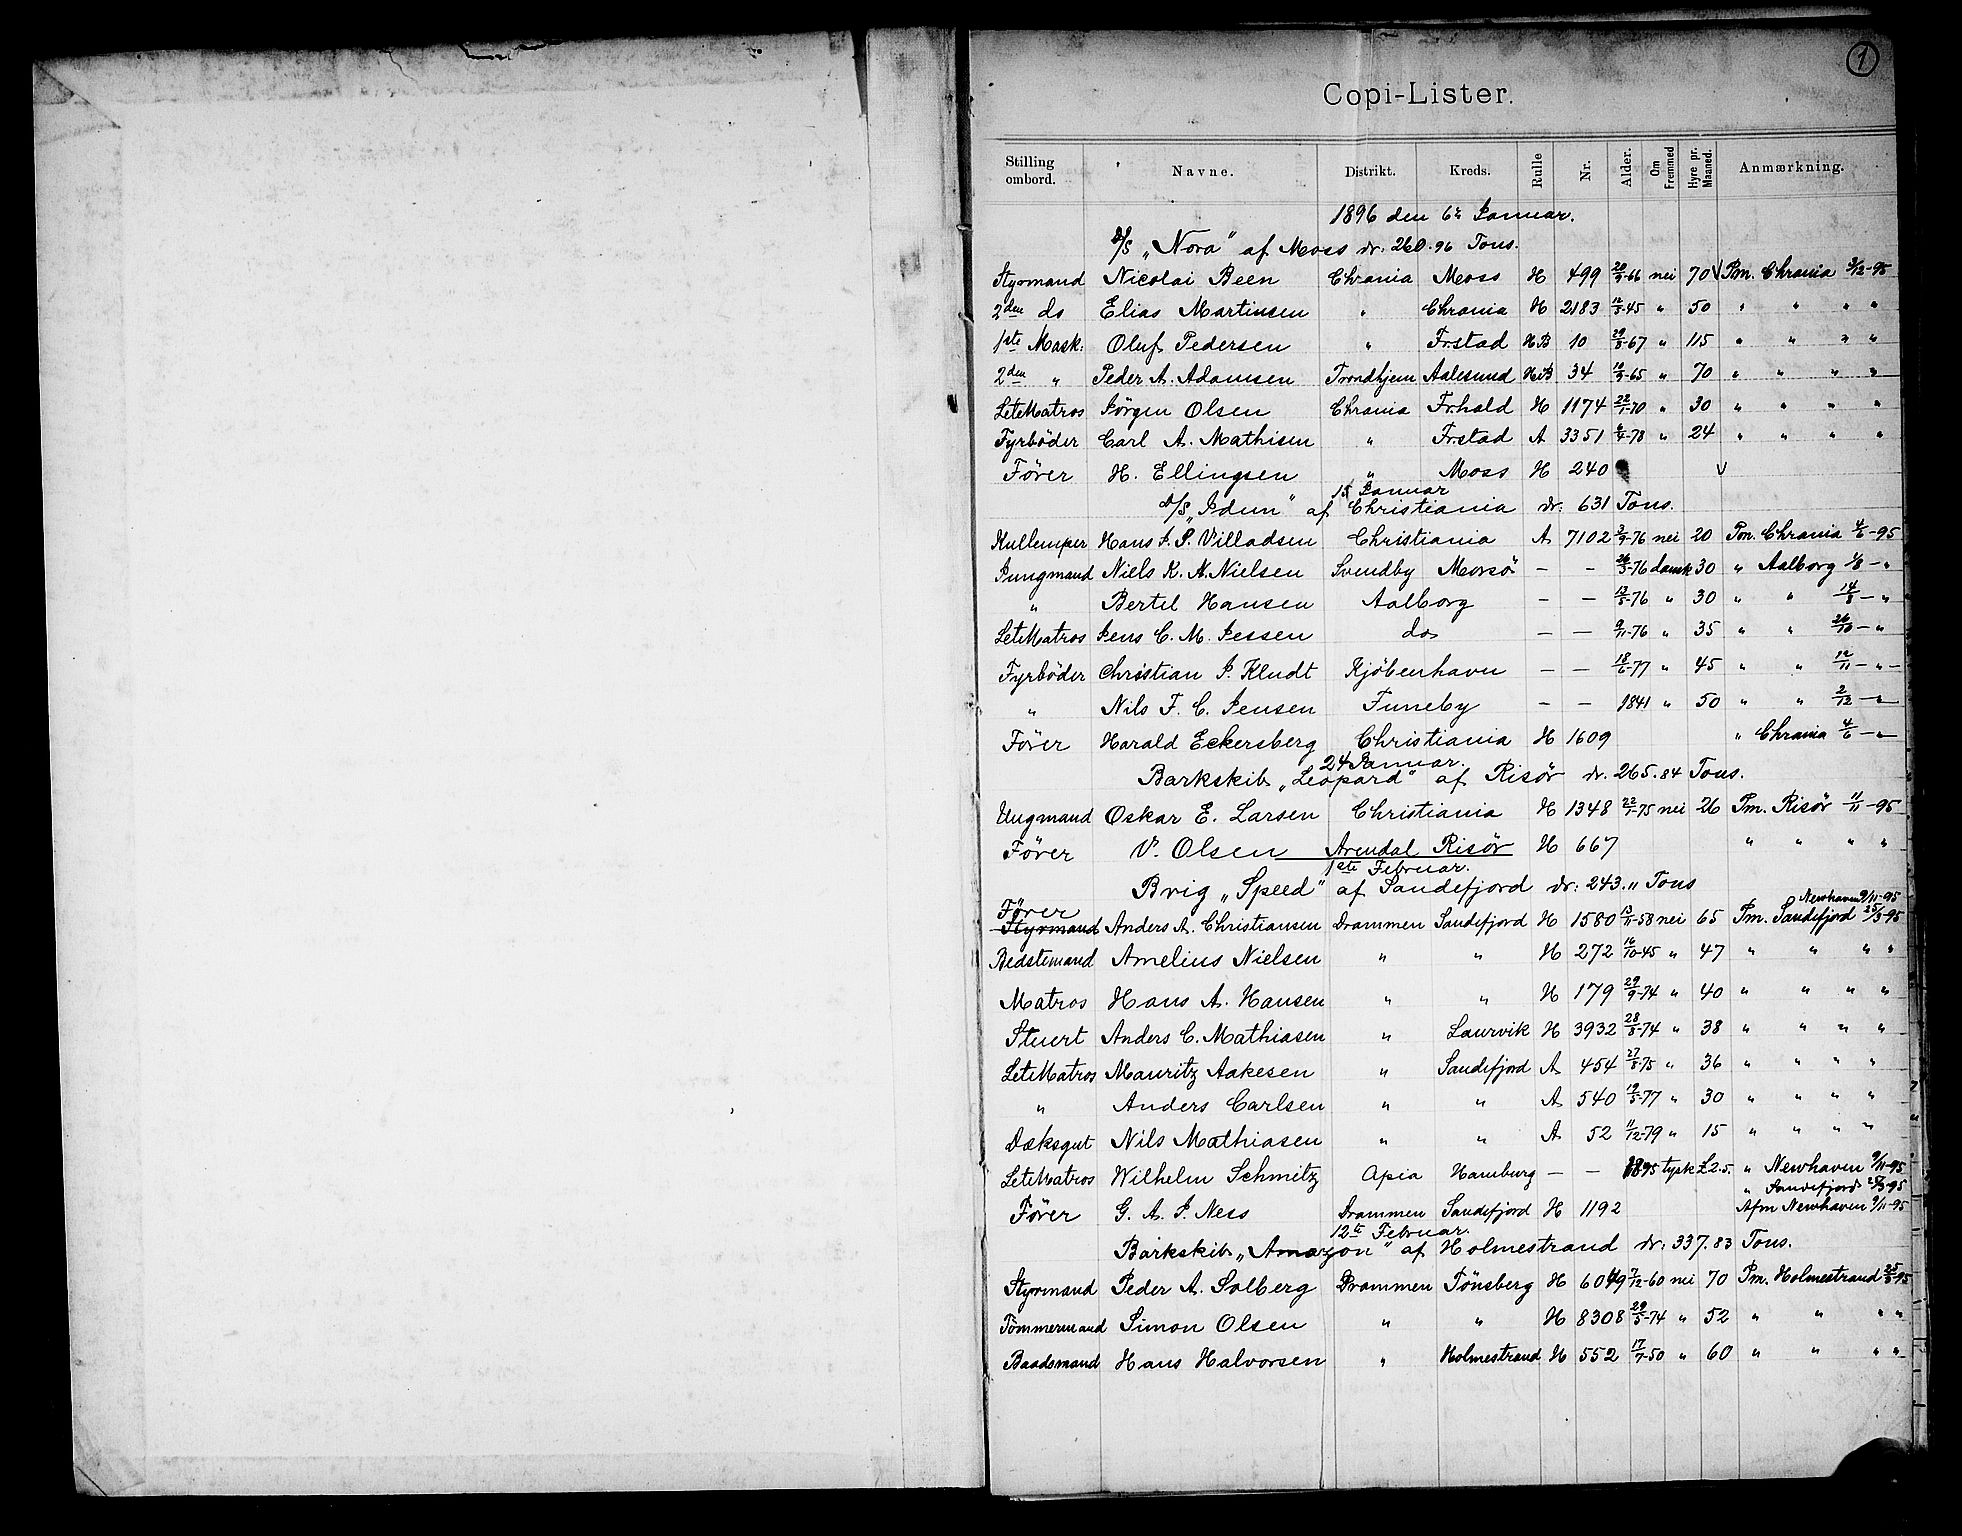 1
Copi-Lister.
Stilling ombord. Navne. Distrikt. Kreds. Rulle Nr. Alder. Om Fremmed Hyre pr. Maaned. Anmærkning.
1896 den 6te Januar.
D/S „Nora" af Moss dr. 260.96 Tons.
Styrmand Nicolai Been Chrania Moss H 499 20/9-66 nei 70 √ Pm. Chrania 3/12-95
2den do Elias Martinsen " Chrania H 2183 12/3-45 " 50 " " " "
1ste Mask: Oluf Pedersen " Frstad HB 10 29/8-67 " 115 " " " "
2den " Peder A. Adamsen Trondhjem Aalesund HB 34 10/9-65 " 70 " " " "
LetMatros Jörgen Olsen Chrania Frhald H 1174 22/1-70 " 30 " " " "
Fyrböder Carl A. Mathisen " Frstad A 3351 6/4-78 " 24 " " " "
Förer H. Ellingsen " Moss H 240 √
15 Januar
D/S „Idun" af Christiania dr. 631 Tons.
Kullemper Hans J. P. Villadsen Christiania A 7102 3/9-76 nei 20 Pm. Chrania 4/6-95
Jungmand Niels K. A. Nielsen Svendby Morsö - - 26/3-76 dansk 30 " Aalborg 1/8 - "
" Bertel Hansen Aalborg - - 13/8-76 " 30 " " 14/8 - "
LetMatros Jens C. M. Jessen do - - 9/11-76 " 35 " " 26/10 - "
Fyrböder Christian J. Kludt Kjöbenhavn - - 18/6-77 " 45 " " 12/11 - " -
" Nils F. C. Jensen Funeby - - 1841 " 50 " " 2/12 - "
Förer Harald Eckersberg Christiania H 1609 " Chrania 4/6 - "
24 Januar.
Barkskib „Leopard" af Risör dr. 265.84 Tons.
Ungmand Oskar E. Larsen Christiania H 1348 22/1-75 nei 26 Pm. Risör 11/11-95
Förer V. Olsen Arendal Risör H 667 " " " "
1ste Februar.
Brig „Speed" af Sandefjord dr: 243." Tons
Newhaven 9/11-95
Förer
Styrmand Anders A. Christiansen Drammen Sandefjord H 1580 13/11-58 nei 65 Pm. Sandefjord 25/3-95
Bedstemand Amelius Nielsen " " H 272 16/10-45 " 47 " " " "
Matros Hans A. Hansen " " H 179 29/9-74 " 40 " " " "
Stuert Anders C. Mathiasen " Laurvik H 3932 28/8-74 " 38 " " " "
LetMatros Mauritz Aakesen " Sandefjord A 454 27/8-75 " 36 " " " "
" Anders Carlsen " " A 540 19/5-77 " 30 " " " "
Dæksgut Nils Mathiasen " " A 52 11/12-79 " 15 " " " "
LetMatros Wilhelm Schmitz Apia Hamburg - - 1895 tysk £2.5. " Newhaven 9/11-95
" Sandefjord 25/3-95
Förer G. A. J. Ness Drammen Sandefjord H 1192 Afm Newhaven 9/11-95
12te Februar.
Barkskib „Amazon" af Holmestrand dr: 337.83 Tons.
Styrmand Peder A. Solberg Drammen Tönsberg H 6049 7/12-60 nei 70 Pm. Holmestrand 25/5-95
Tömmermand Simon Olsen " " H 8308 29/5-74 " 52 " " " "
Baadsmand Hans Halvorsen " Holmestrand H 552 17/7-50 " 60 " " " "